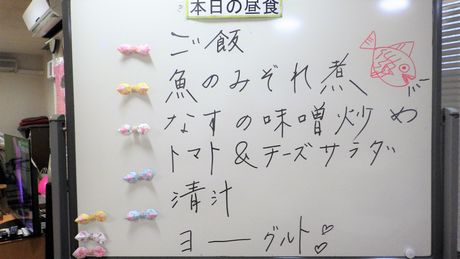 本日の昼食
ご飯
魚のみぞれ煮
なすの味噌炒め
トマト&チーズサラダ
清汁
ヨーグルト♡♡